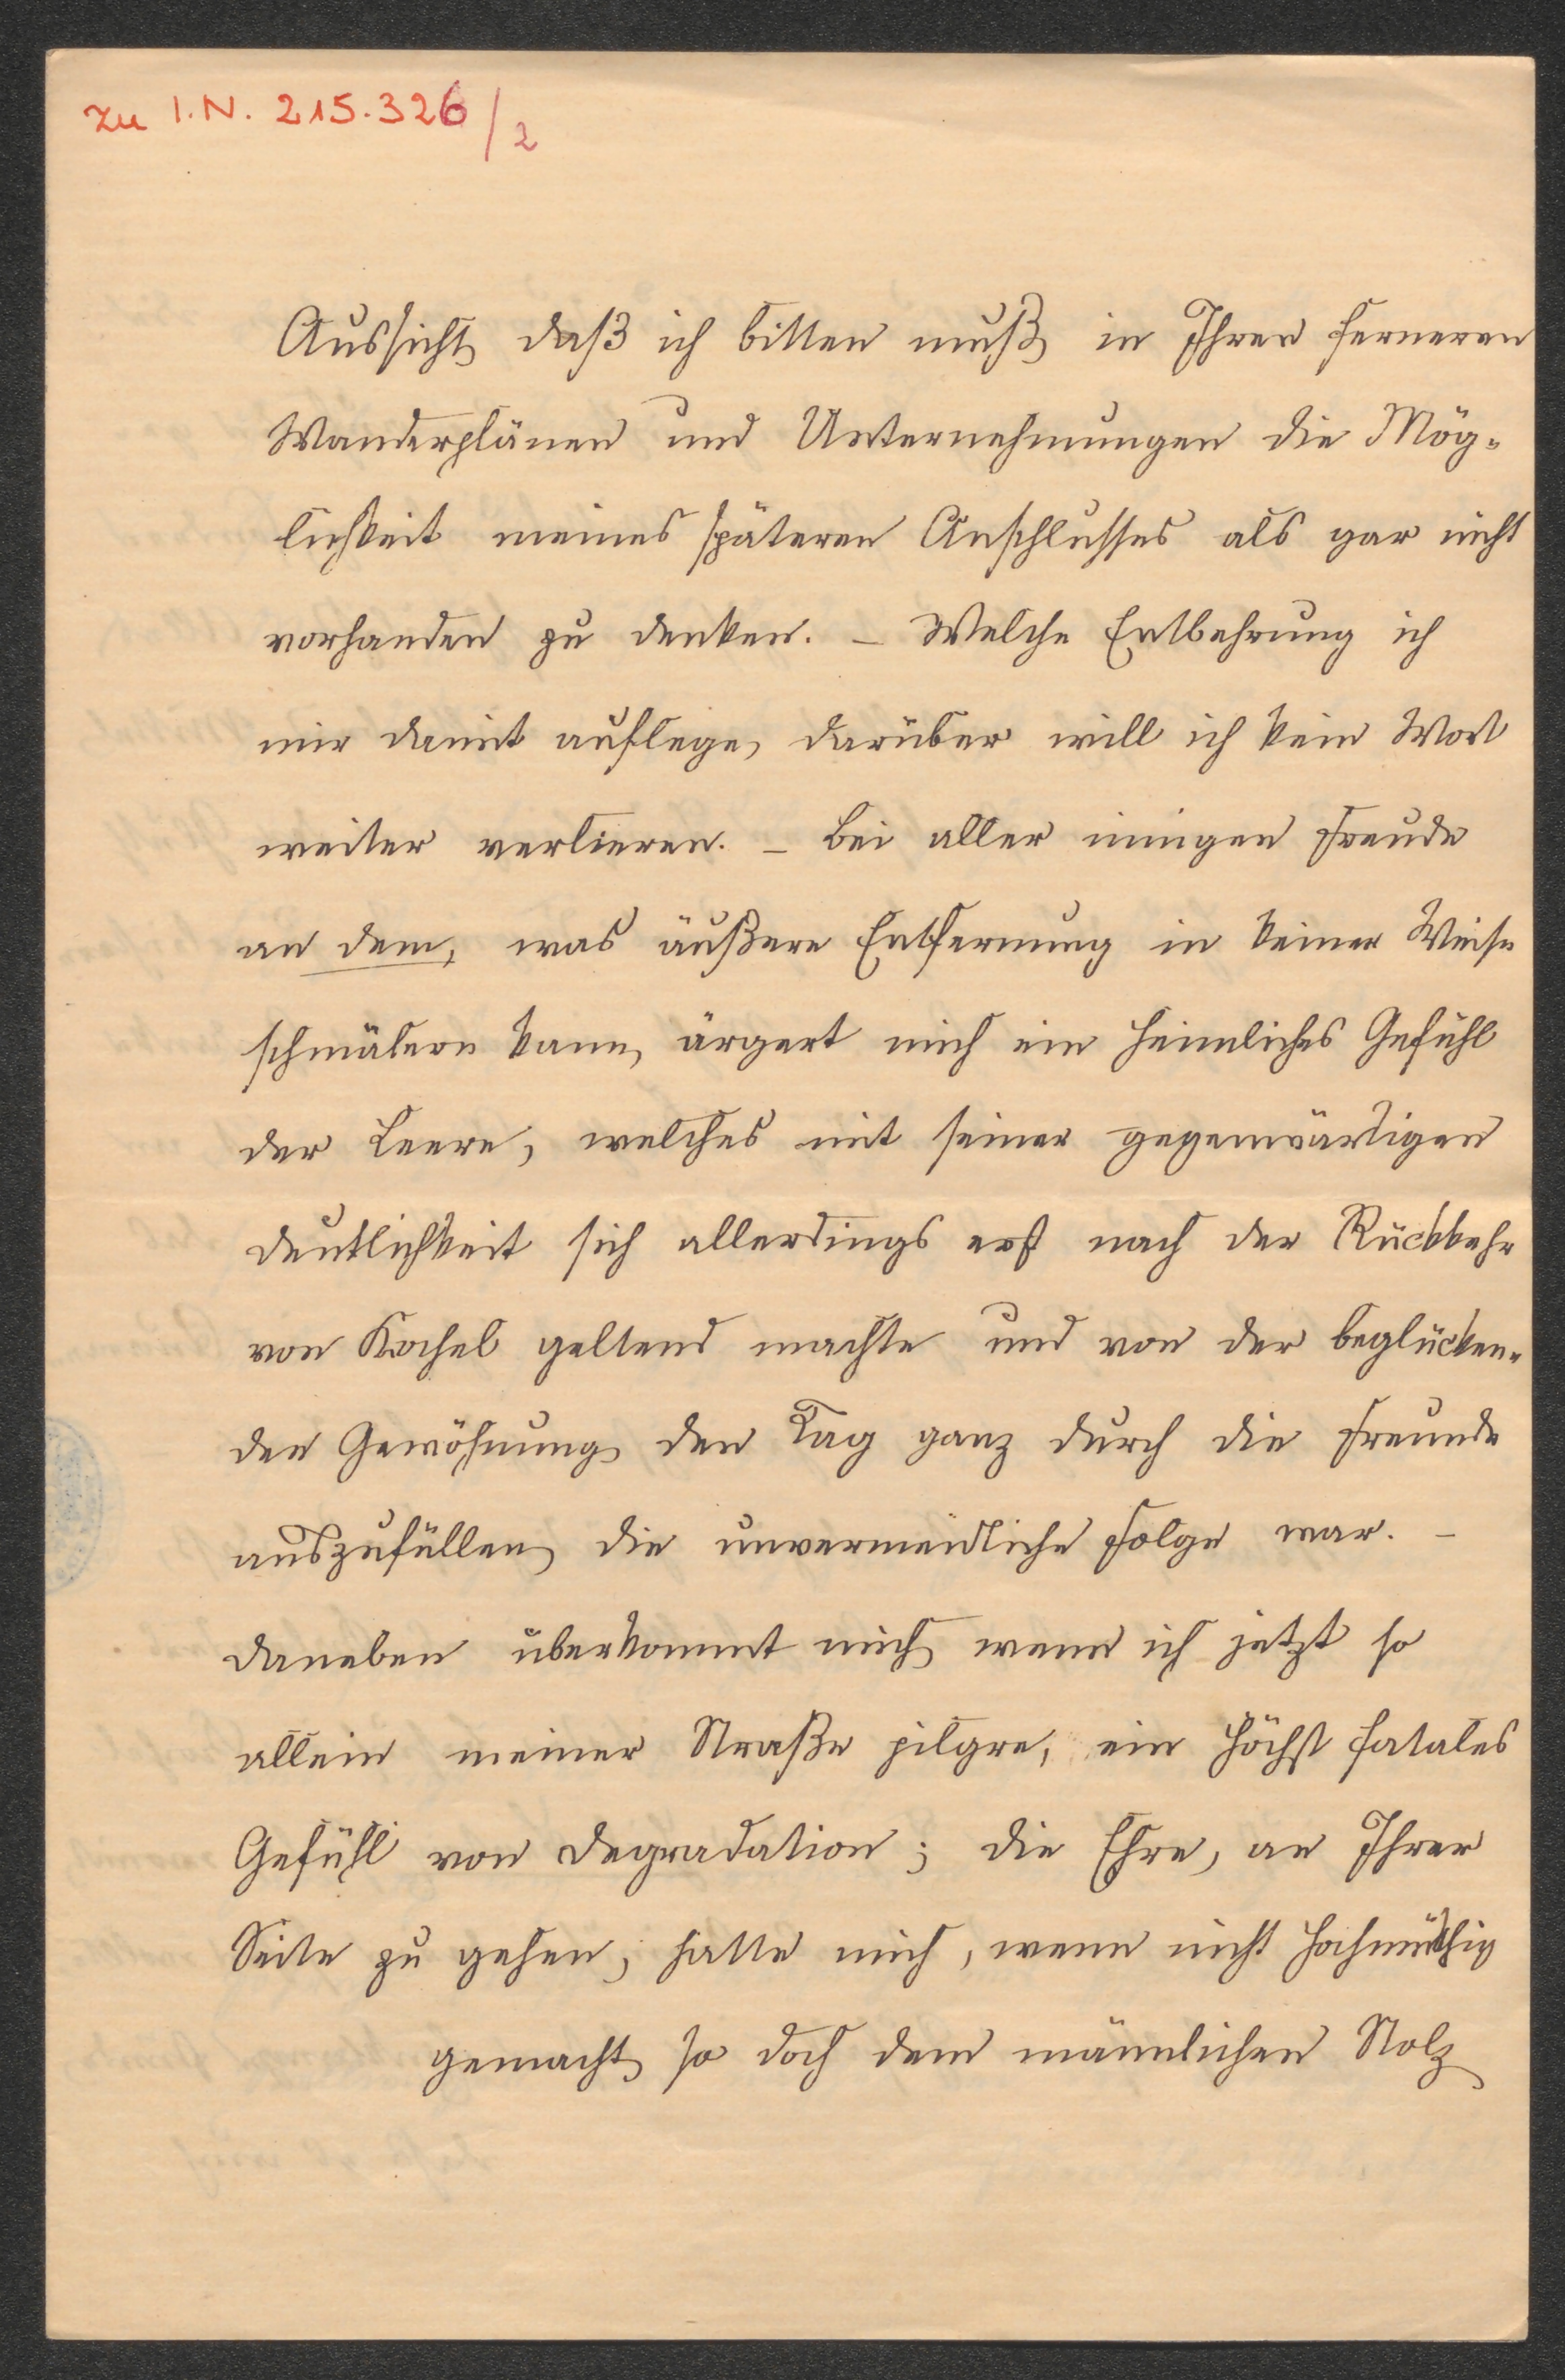 zu I.N. 215.326/2
Aussicht, daß ich bitten muß, in Ihren ferneren
Wanderplänen und Unternehmungen die Mög-
lichkeit meines späteren Anschlusses als gar nicht
vorhanden zu denken. – Welche Entbehrung ich
mir damit auflege, darüber will ich kein Wort
weiter verlieren. – Bei aller innigen Freude
an dem, was äußere Entfernung in keiner Weise
schmälern kann, ärgert mich ein heimliches Gefühl
der Leere, welches mit seiner gegenwärtigen
Deutlichkeit sich allerdings erst nach der Rückkehr
von Kochel geltend machte und von der beglücken-
den Gewöhnung, den Tag ganz durch die Freunde
auszufüllen, die unvermeidliche Folge war. –
Daneben überkommt mich, wenn ich jetzt so
allein meiner Straße pilgre, ein höchst fatales
Gefühl von Degradation; die Ehre, an Ihrer
Seite zu gehen, hatte mich, wenn nicht hochmüthig
gemacht, so doch dem männlichen Stolz